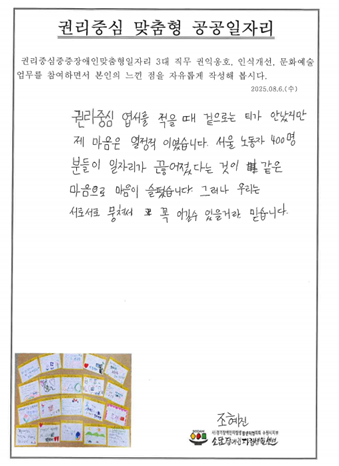 권리중심 맞춤형 공공일자리
권리중심중증장애인맞춤형일자리 3대 직무 권익옹호, 인식개선, 문화예술
업무를 참여하면서 본인의 느낀 점을 자유롭게 작성해 봅시다.
2025.08.6.(수)
권리중심 엽서를 적을 때 겉으로는 티가 안났지만
제 마음은 열정적 이였습니다. 서울 노동자 400명
분들이 일자리가 끊어졌다는 것이 같은
마음으로 마음이 슬펐습니다. 그러나 우리는
서로서로 뭉쳐서 꼭 이길수 있을거란 믿습니다.
조혜진